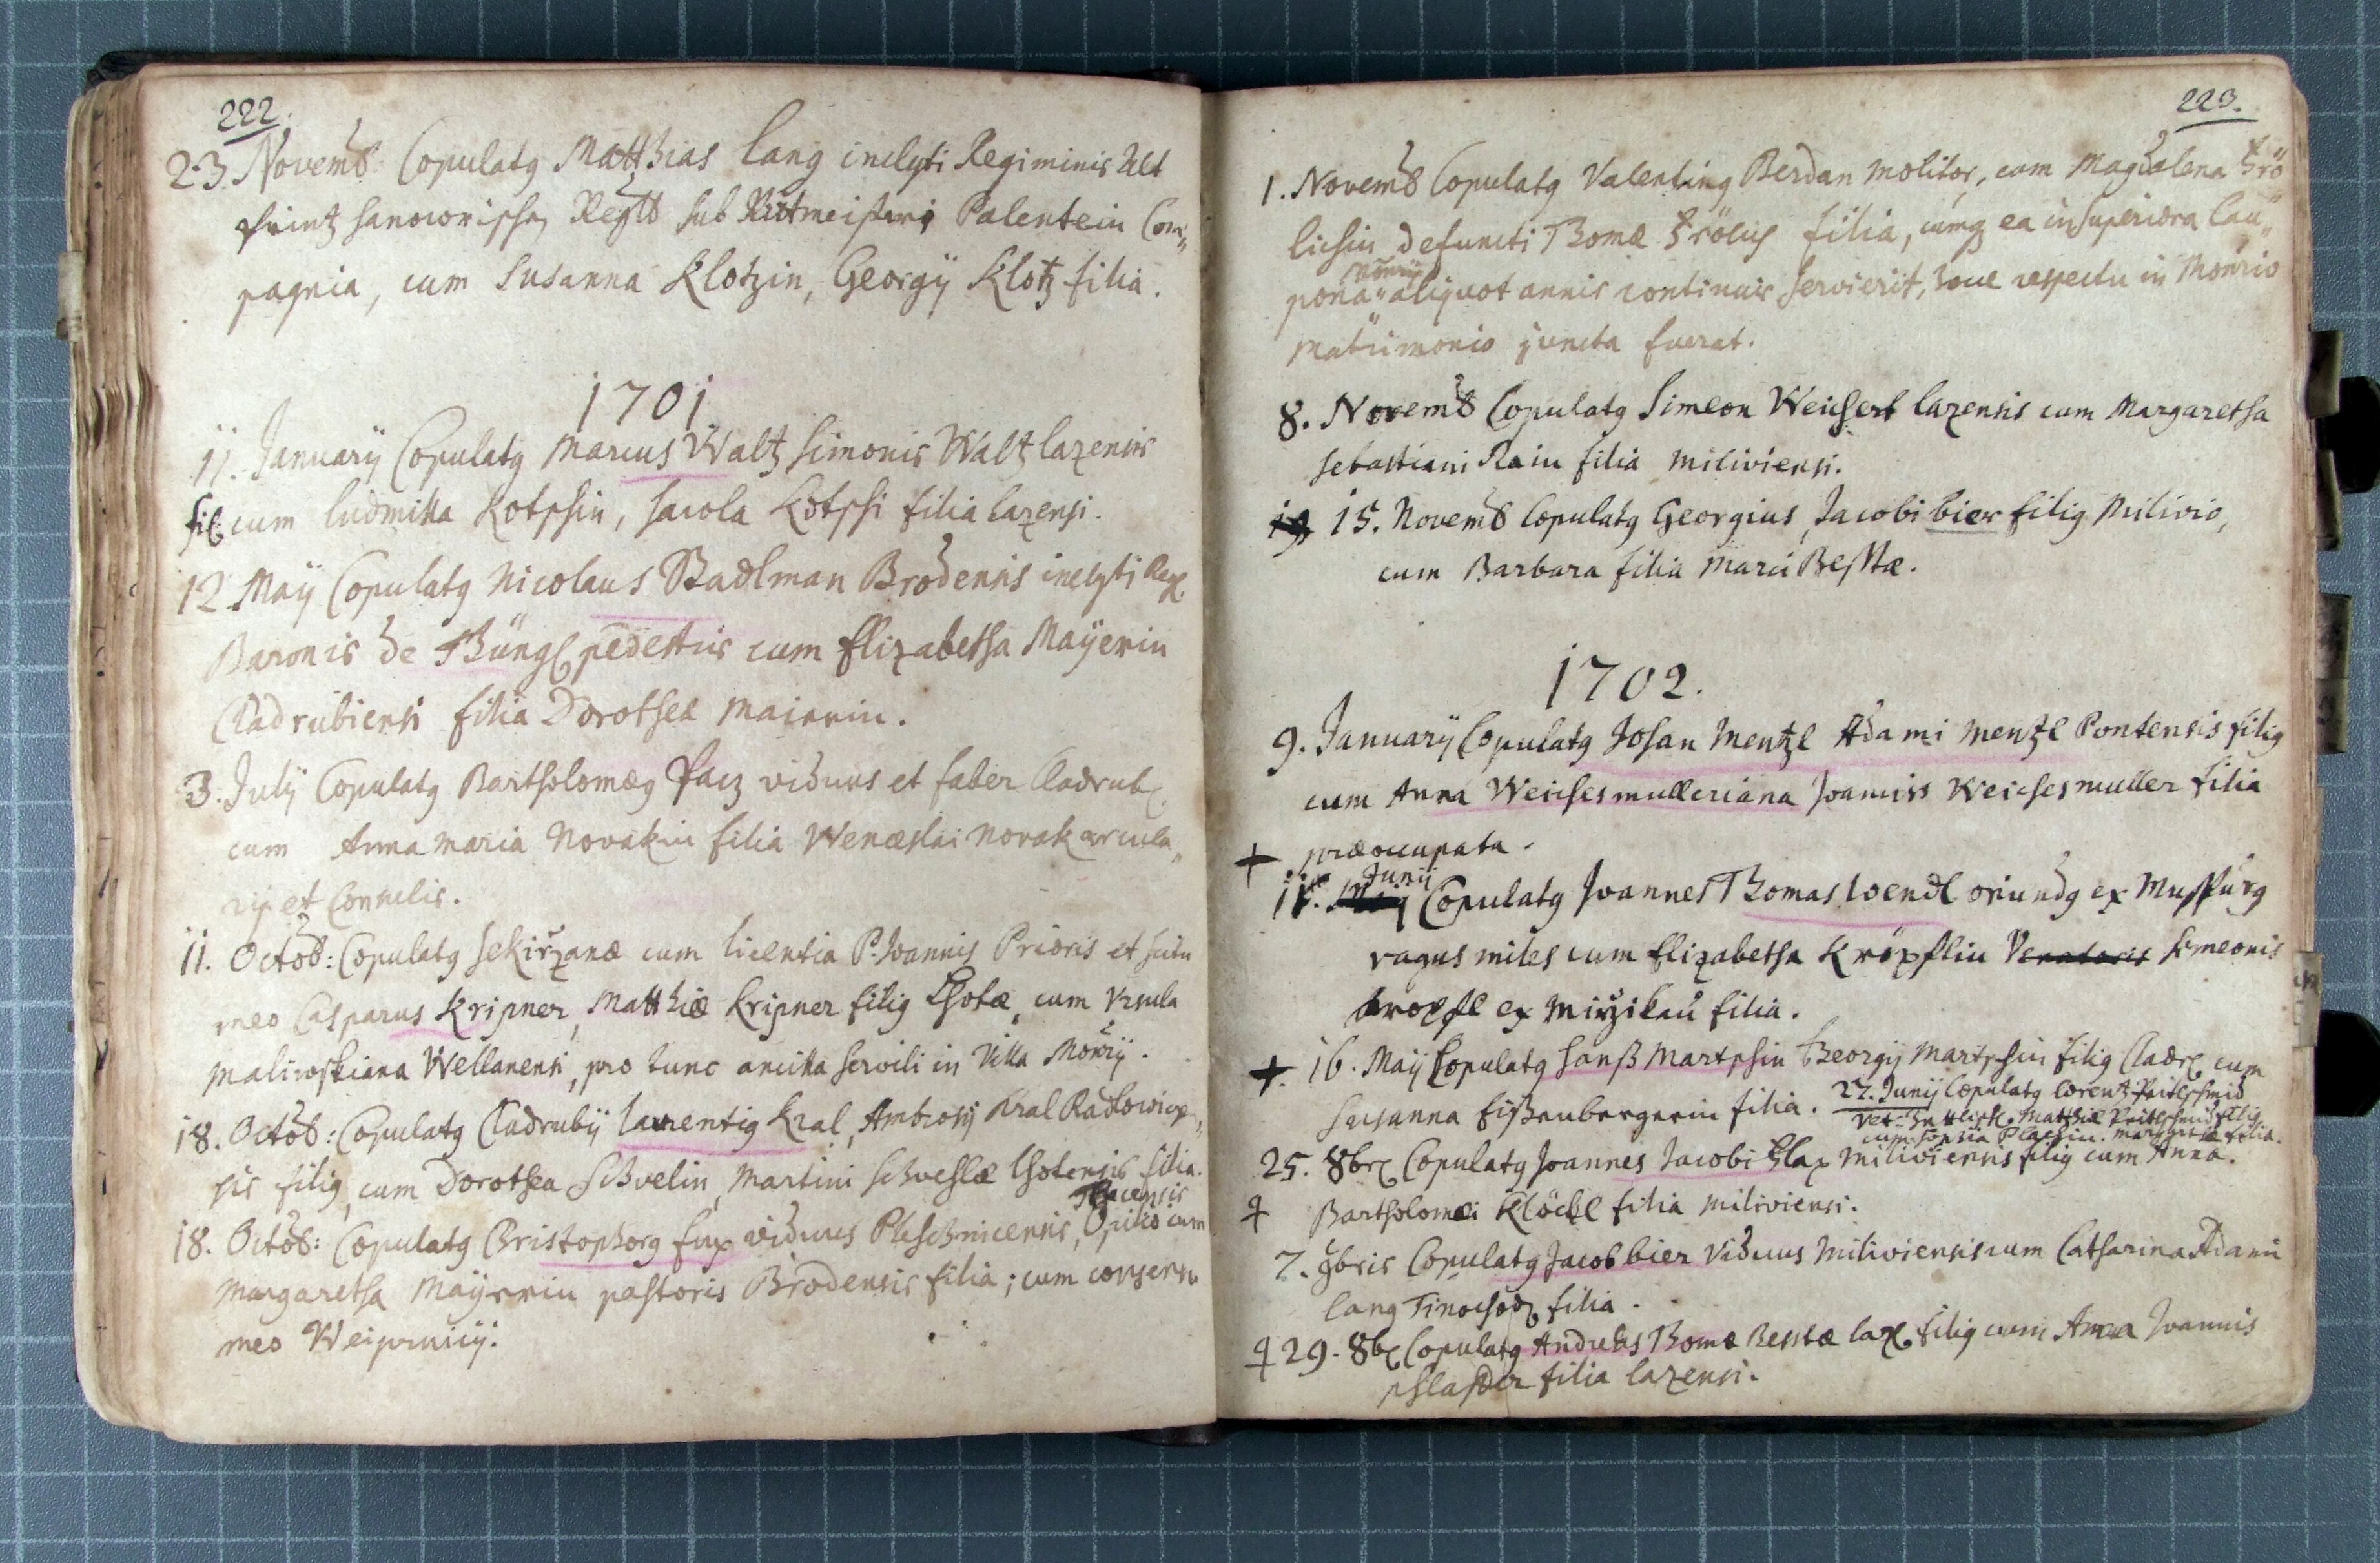 222.
23. Novemb: Copulatg Matthias Lang inclyti Regiminis Alt
printz hanoworischen Regts sub Ritmeisteri Palentein Com„
pagnia, cum Susanna Klotzin, Georgÿ Klotz filia.
1701
11. Januarÿ Copulatg Marcus Waltz Simonis Waltz lazensis
fil: cum ludmilla Kotzhin, Jacoba Kotzhi filia lazensi.
12 Maÿ Copulatg Nicolaus Stadlman Brodensis inclyti Reg.
Baronis de Thüng pedestris cum Elizabetha Maÿerin
Cladrubiensi filia Dorothea Maierin.
3. Julÿ Copulatg Bartholomæg viduus et faber Cladrub.
cum Anna Maria Novakin filia Wenceslai Novak arcula„
rij et Consulis.
11. Octob: Copulatg Sekirzanæ cum licentia P. Joannis Prioris et scitu
meo Casparus Kripner, Matthiæ Kripner filig Lhotæ, cum Ursula
Maliwskiana Wellanensi, pro tunc ancilla servili in Villa Monrÿ.
18. Octob: Copulatg Cladrubÿ Laurentig Kral, Ambrosÿ Kral Radlowicen„
sis filig, cum Dorothea Schvelin, Martini Schveslæ Lhotensis filia.
18. Octob: Copulatg Christophorg fux viduus Pleschnicensis, Opilio cum
Margaretha Maÿerin pastoris Brodensis filia; cum consensu
meo Weiprnicÿ.
223.
1. Novemb Copulatg Valenting Berdan Molitor, cum Magdalena Frö
lichin defuncti Thomæ Frölig filia, cumg ea in superiora Cau„
pona
Monrÿ
„aliquot annis continuis servierit, hocce respectu in Monrio
matrimonio juncta fuerat.
8. Novemb Copulatg Simeon Weichert lazensis cum Margaretha
Sebastiani Rain filia miliviensi.
15. Novemb Copulatg Georgius, Jacobi bier filig Milivio,
cum Barbara filia Marci Bestæ.
1702.
9. Januarÿ Copulatg Johan Mentzl Adami Mentzl Pontensis filig
cum Anna Weichesmulleriana Joannis Weichesmuller filia
præoccupata.
11. Junÿ Copulatg Joannes Thomas Wendl oriundg ex Muspurg
vagus miles cum Elizabetha Kröpflin Venatoris Simeonis
Kröpfl ex Mirzikau filia.
16. Maÿ Copulatg Hanß Martzhin Georgÿ Martzhin filig Cladr. cum
Susanna Eißenbergerin filia. 27. Junÿ Copulatg Lorentz Reiterschmid
Matthiæ Reiterschmid filig
cum Sophia filia.
25. 8br. Copulatg Joannes Jacobi Hlax Miliviensis filig cum Anna
Bartholomæi Klöckl filia Miliviensi.
7. 9bris Copulatg Jacob bier Viduus Miliviensis cum Catharina Adami
Lang Tinochod. filia.
29. 8b. Copulatg Andreas Thomæ Bestæ laz. filig cum Anna Joannis
filia lazensi.